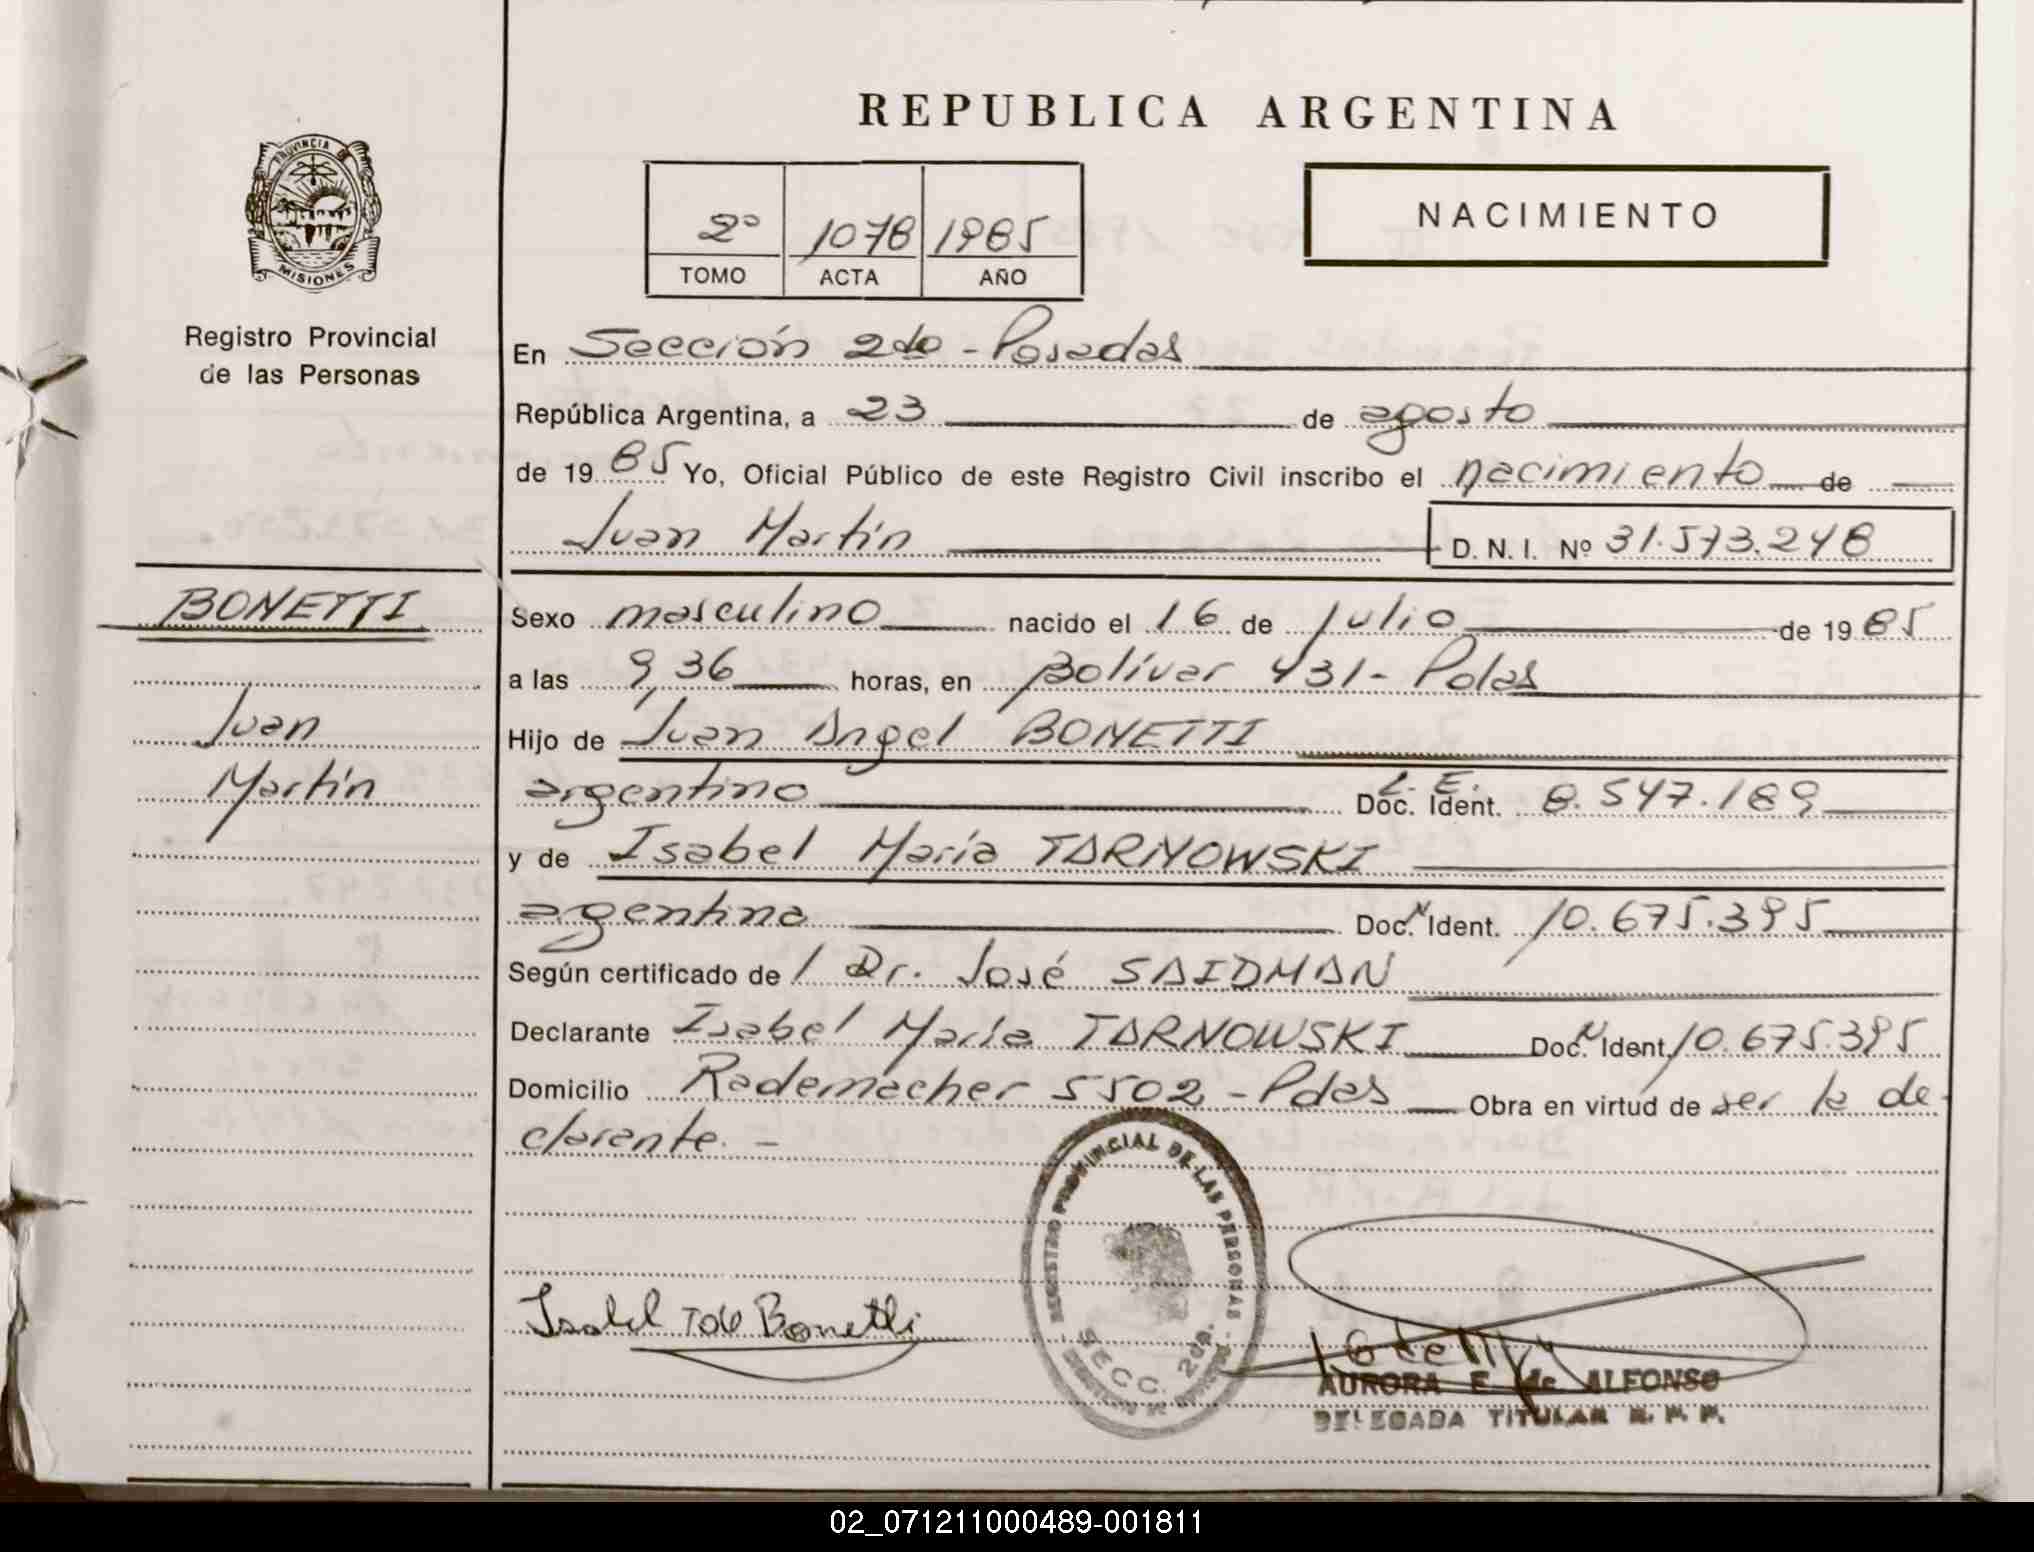 REPUBLICA ARGENTINA
PROVINCIA DE
MISIONES
Registro Provincial
de las Personas
2º 1078 1985
TOMO ACTA AÑO
NACIMIENTO
En Sección 2da - Posadas
República Argentina, a 23 de agosto
de 19 85 Yo, Oficial Público de este Registro Civil inscribo el nacimiento de
Juan Martín D. N. I. Nº 31.573.248
BONETTI
Juan
Martín
Sexo masculino nacido el 16 de julio de 19 85
a las 9,36 horas, en Bolívar 431 - Pdas
Hijo de Juan Angel BONETTI
argentino L. E. Doc. Ident. 8.547.189
y de Isabel María TARNOWSKI
argentina Doc. Ident. 10.675.395
Según certificado de / Dr. José SAIDMAN
Declarante Isabel María TARNOWSKI Doc. Ident. 10.675.395
Domicilio Rademacher 5502 - Pdas Obra en virtud de ser la de-
clarante. -
REGISTRO PROVINCIAL DE LAS PERSONAS
SECC. 2da.
Isabel T de Bonetti
AURORA E. de ALFONSO
DELEGADA TITULAR R. P. P.
02_071211000489-001811